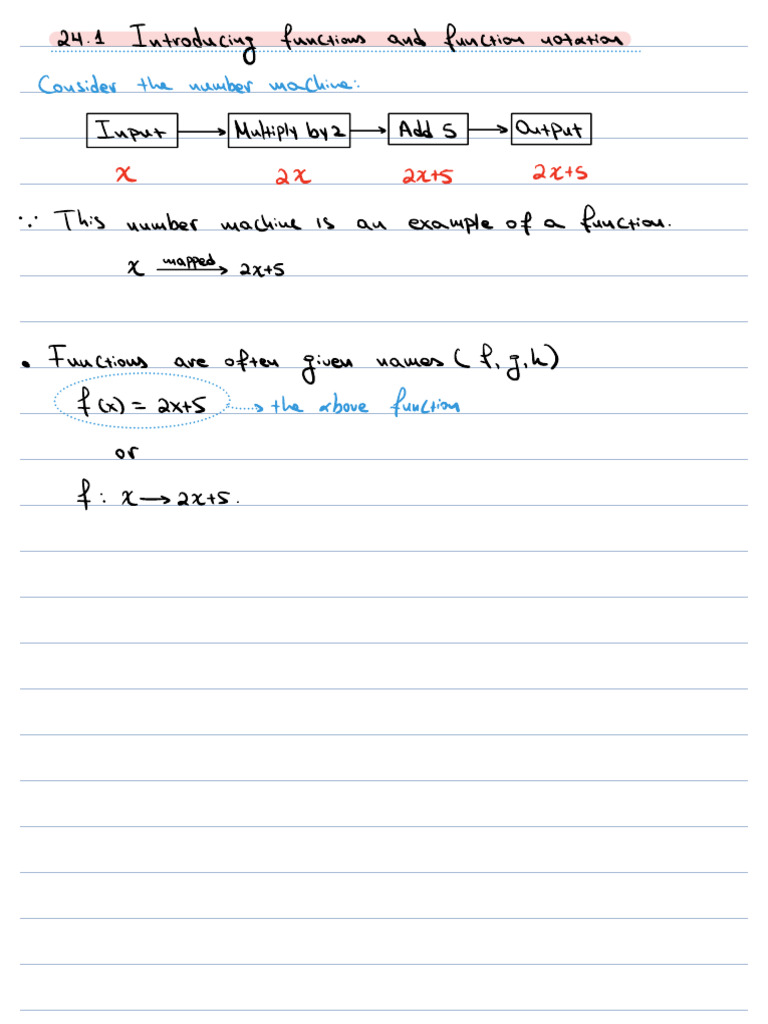 24.1 Introducing functions and function notation
Consider the number machine:
Input → Multiply by 2 → Add 5 → Output
x 2x 2x+5 2x+5
∵ This number machine is an example of a function.
x mapped → 2x+5
• Functions are often given names ( f, g, h)
f(x) = 2x+5 → the above function
or
f: x → 2x+5.